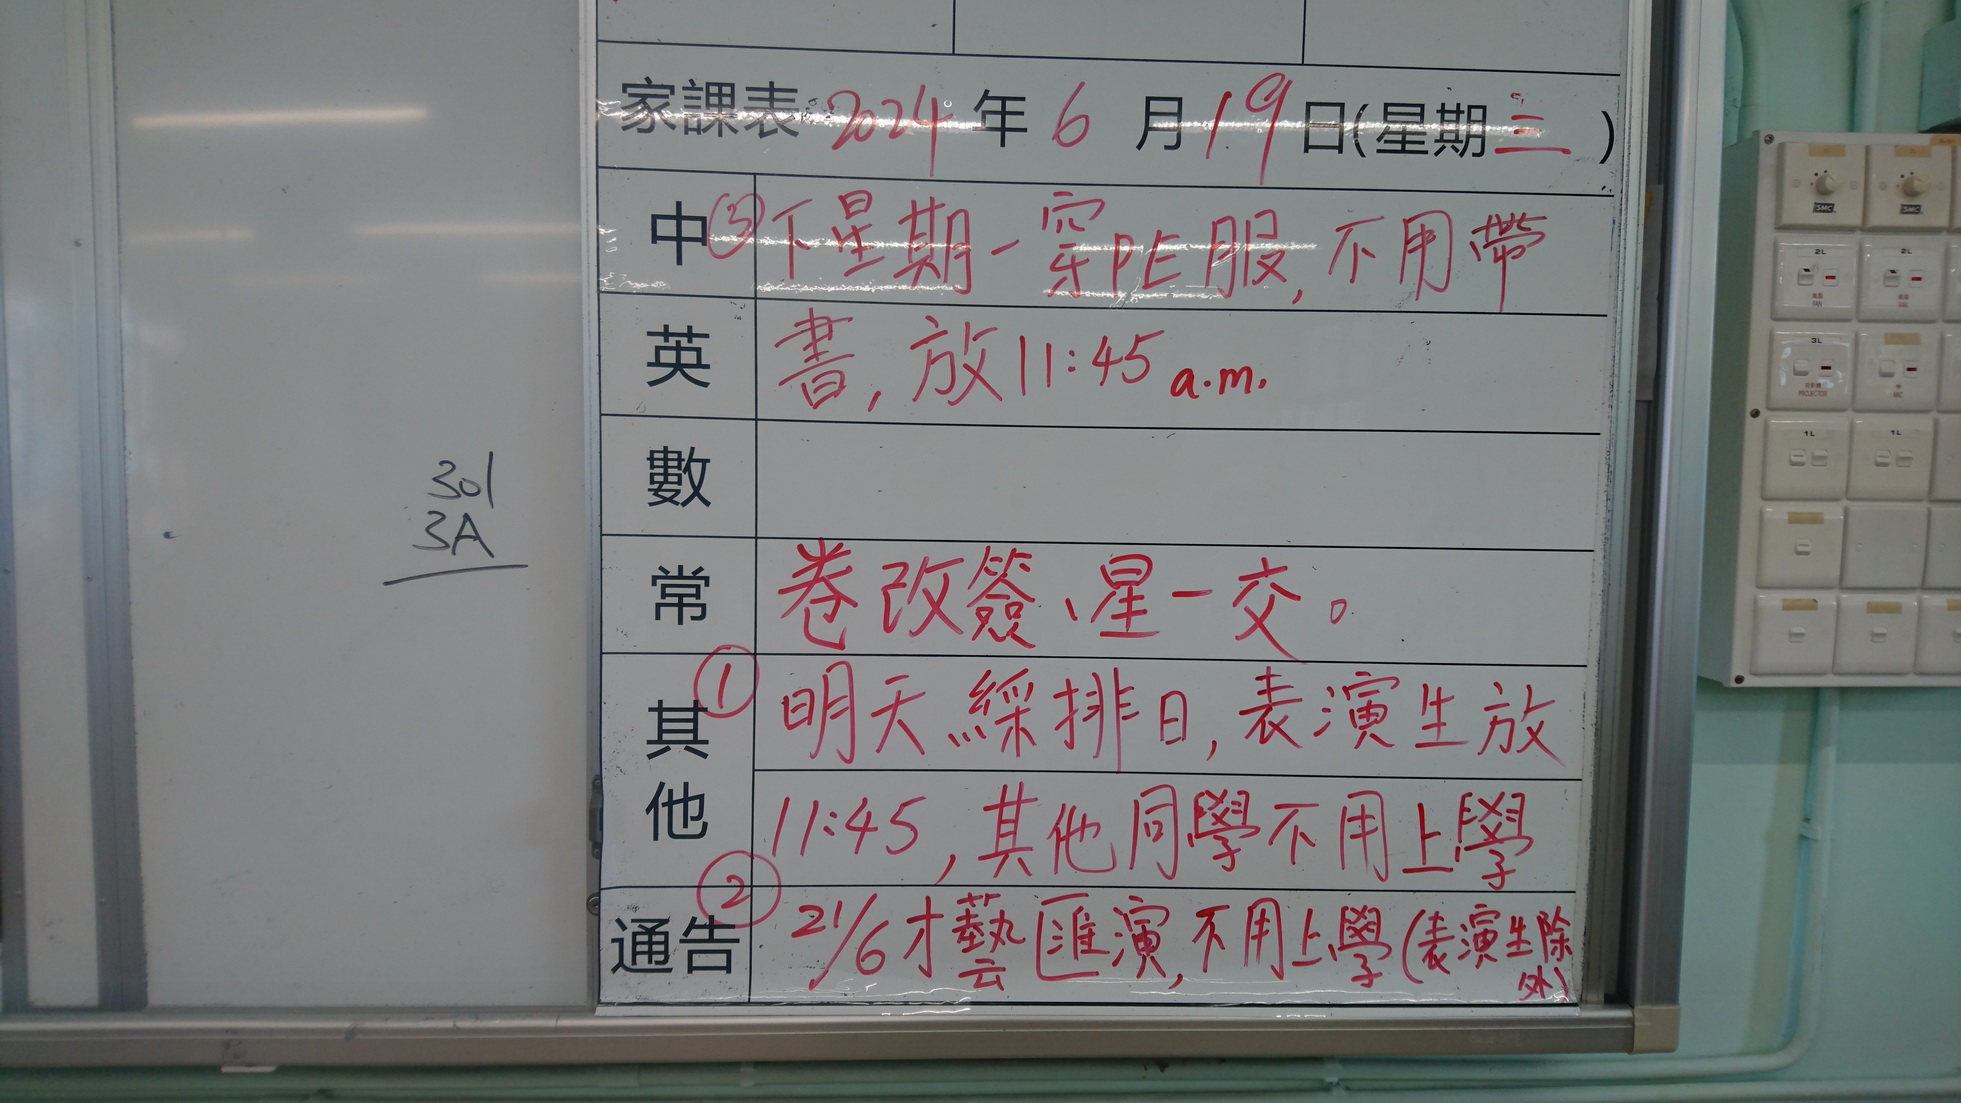 家課表：2024年6月19日(星期三)
中 ③下星期一穿PE服,不用帶
英 書,放11:45 a.m.
數
常 卷改簽、星一交。
其他 ①明天綵排日,表演生放
11:45,其他同學不用上學
通告 ②21/6才藝匯演,不用上學(表演生除
外)
301
3A
SMC
SMC
2L
2L
FAN
3L
PROJECTOR
1L
1L